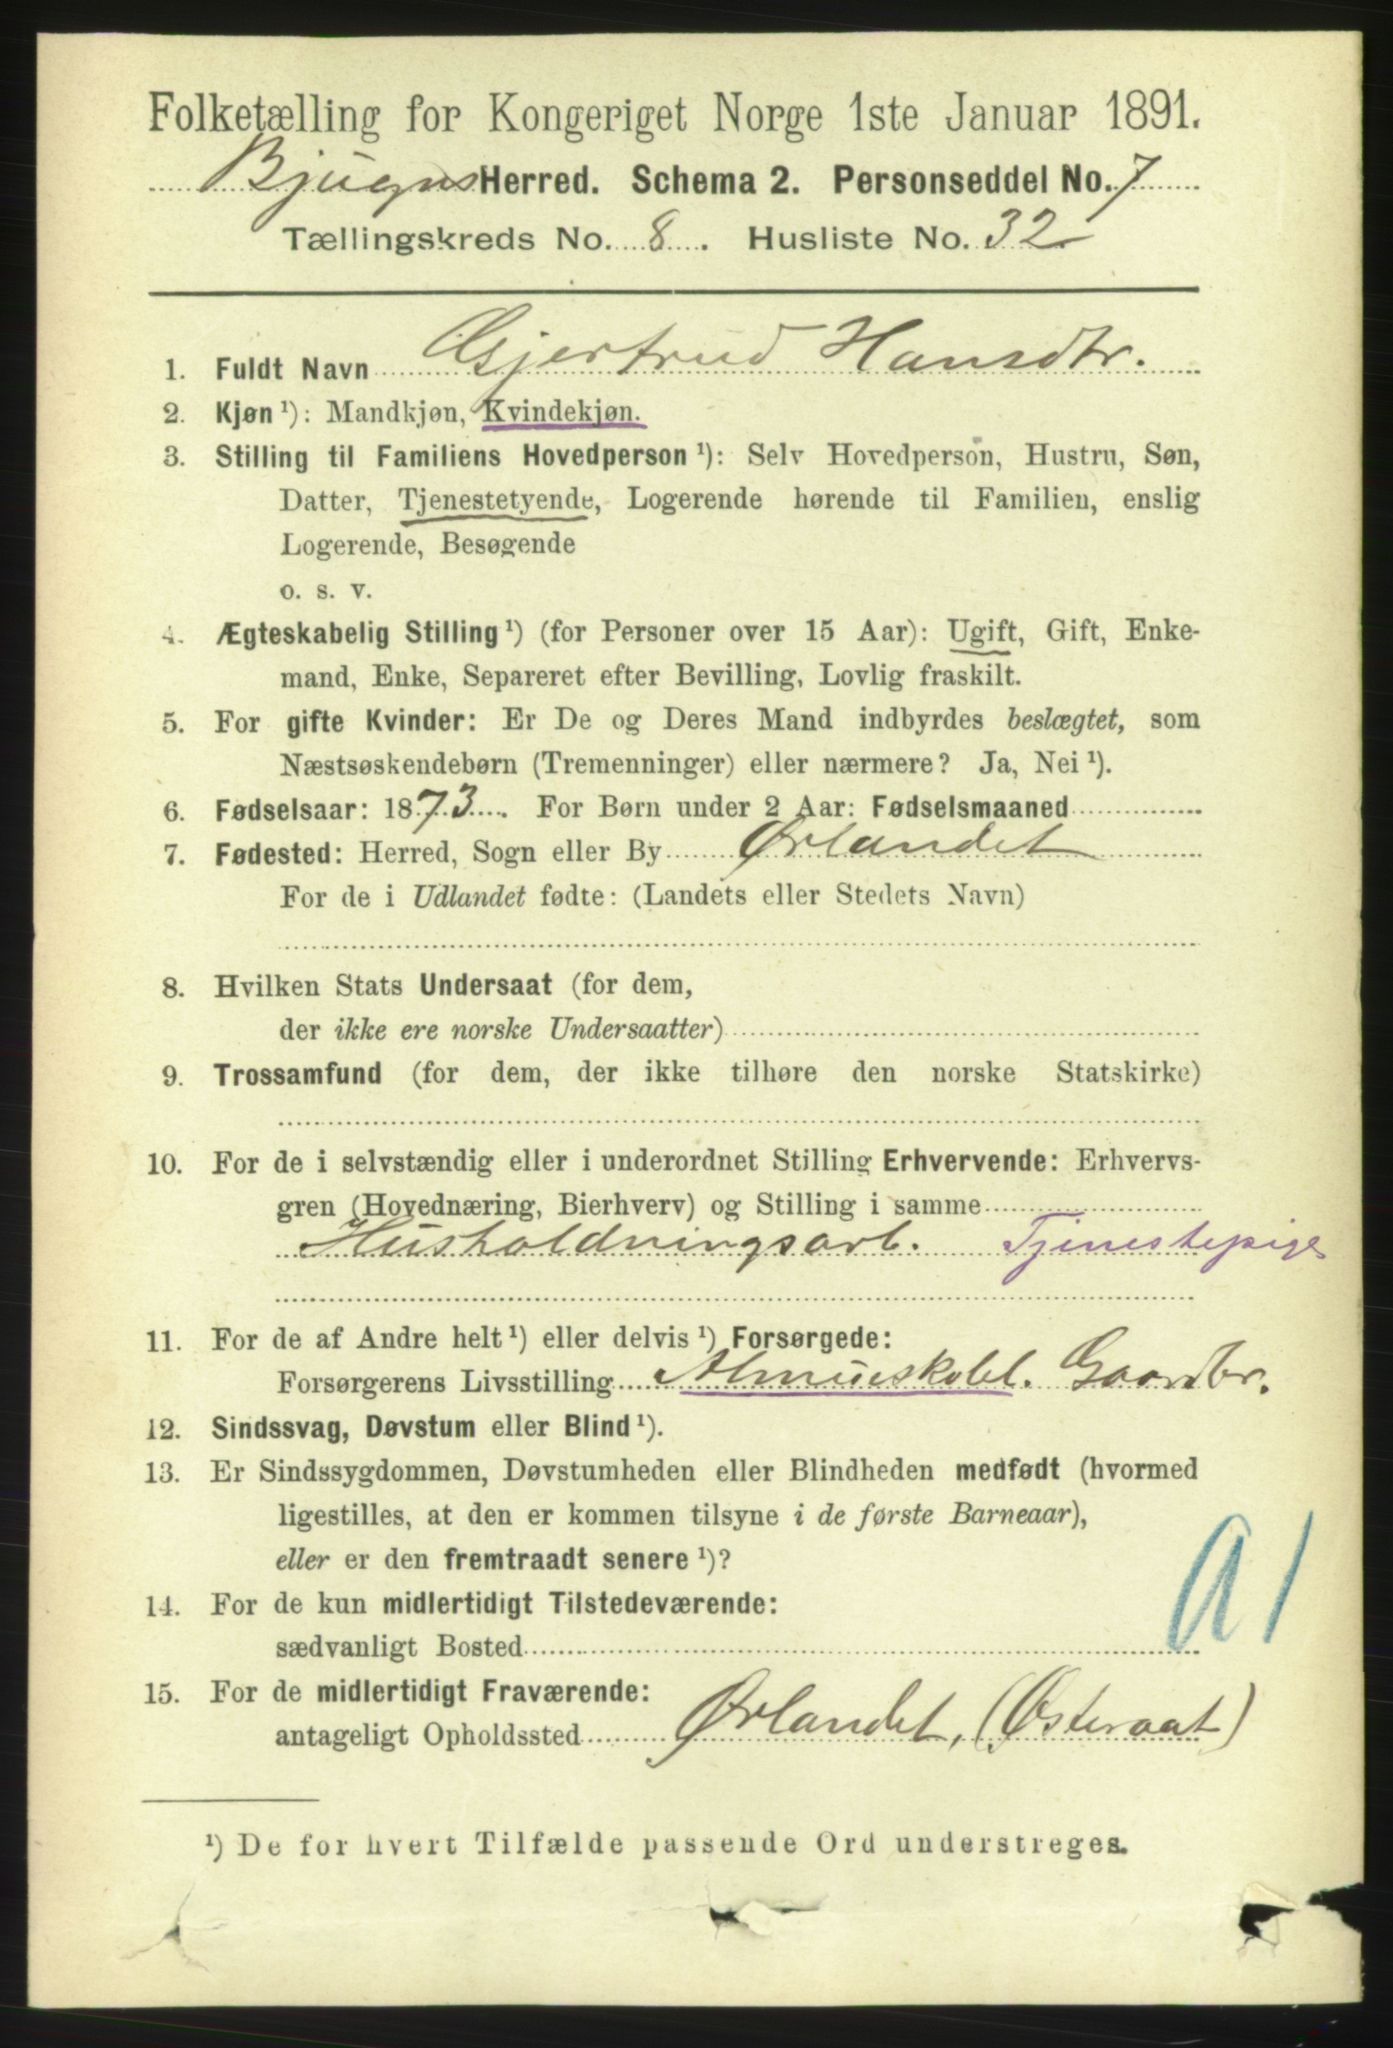 Folketælling for Kongeriget Norge 1ste Januar 1891.
Bjugns Herred. Schema 2. Personseddel No. 7
Tællingskreds No. 8. Husliste No. 32
1. Fuldt Navn Gjertrud Hansdtr.
2. Kjøn ¹): Mandkjøn, Kvindekjøn.
3. Stilling til Familiens Hovedperson ¹): Selv Hovedperson, Hustru, Søn,
Datter, Tjenestetyende, Logerende hørende til Familien, enslig
Logerende, Besøgende
o. s. v.
4. Ægteskabelig Stilling ¹) (for Personer over 15 Aar): Ugift, Gift, Enke-
mand, Enke, Separeret efter Bevilling, Lovlig fraskilt.
5. For gifte Kvinder: Er De og Deres Mand indbyrdes beslægtet, som
Næstsøskendebørn (Tremenninger) eller nærmere? Ja, Nei ¹).
6. Fødselsaar: 1873. For Børn under 2 Aar: Fødselsmaaned
7. Fødested: Herred, Sogn eller By Ørlandet
For de i Udlandet fødte: (Landets eller Stedets Navn)
8. Hvilken Stats Undersaat (for dem,
der ikke ere norske Undersaatter)
9. Trossamfund (for dem, der ikke tilhøre den norske Statskirke)
10. For de i selvstændig eller i underordnet Stilling Erhvervende: Erhvervs-
gren (Hovednæring, Bierhverv) og Stilling i samme
Husholdningsarb. Tjenestepige
11. For de af Andre helt ¹) eller delvis ¹) Forsørgede:
Forsørgerens Livsstilling Gaardbr.
12. Sindssvag, Døvstum eller Blind ¹).
13. Er Sindssygdommen, Døvstumheden eller Blindheden medfødt (hvormed
ligestilles, at den er kommen tilsyne i de første Barneaar),
eller er den fremtraadt senere ¹)?
14. For de kun midlertidigt Tilstedeværende:
sædvanligt Bosted
A1
15. For de midlertidigt Fraværende:
antageligt Opholdssted Ørlandet, (Østeraat)
¹) De for hvert Tilfælde passende Ord understreges.